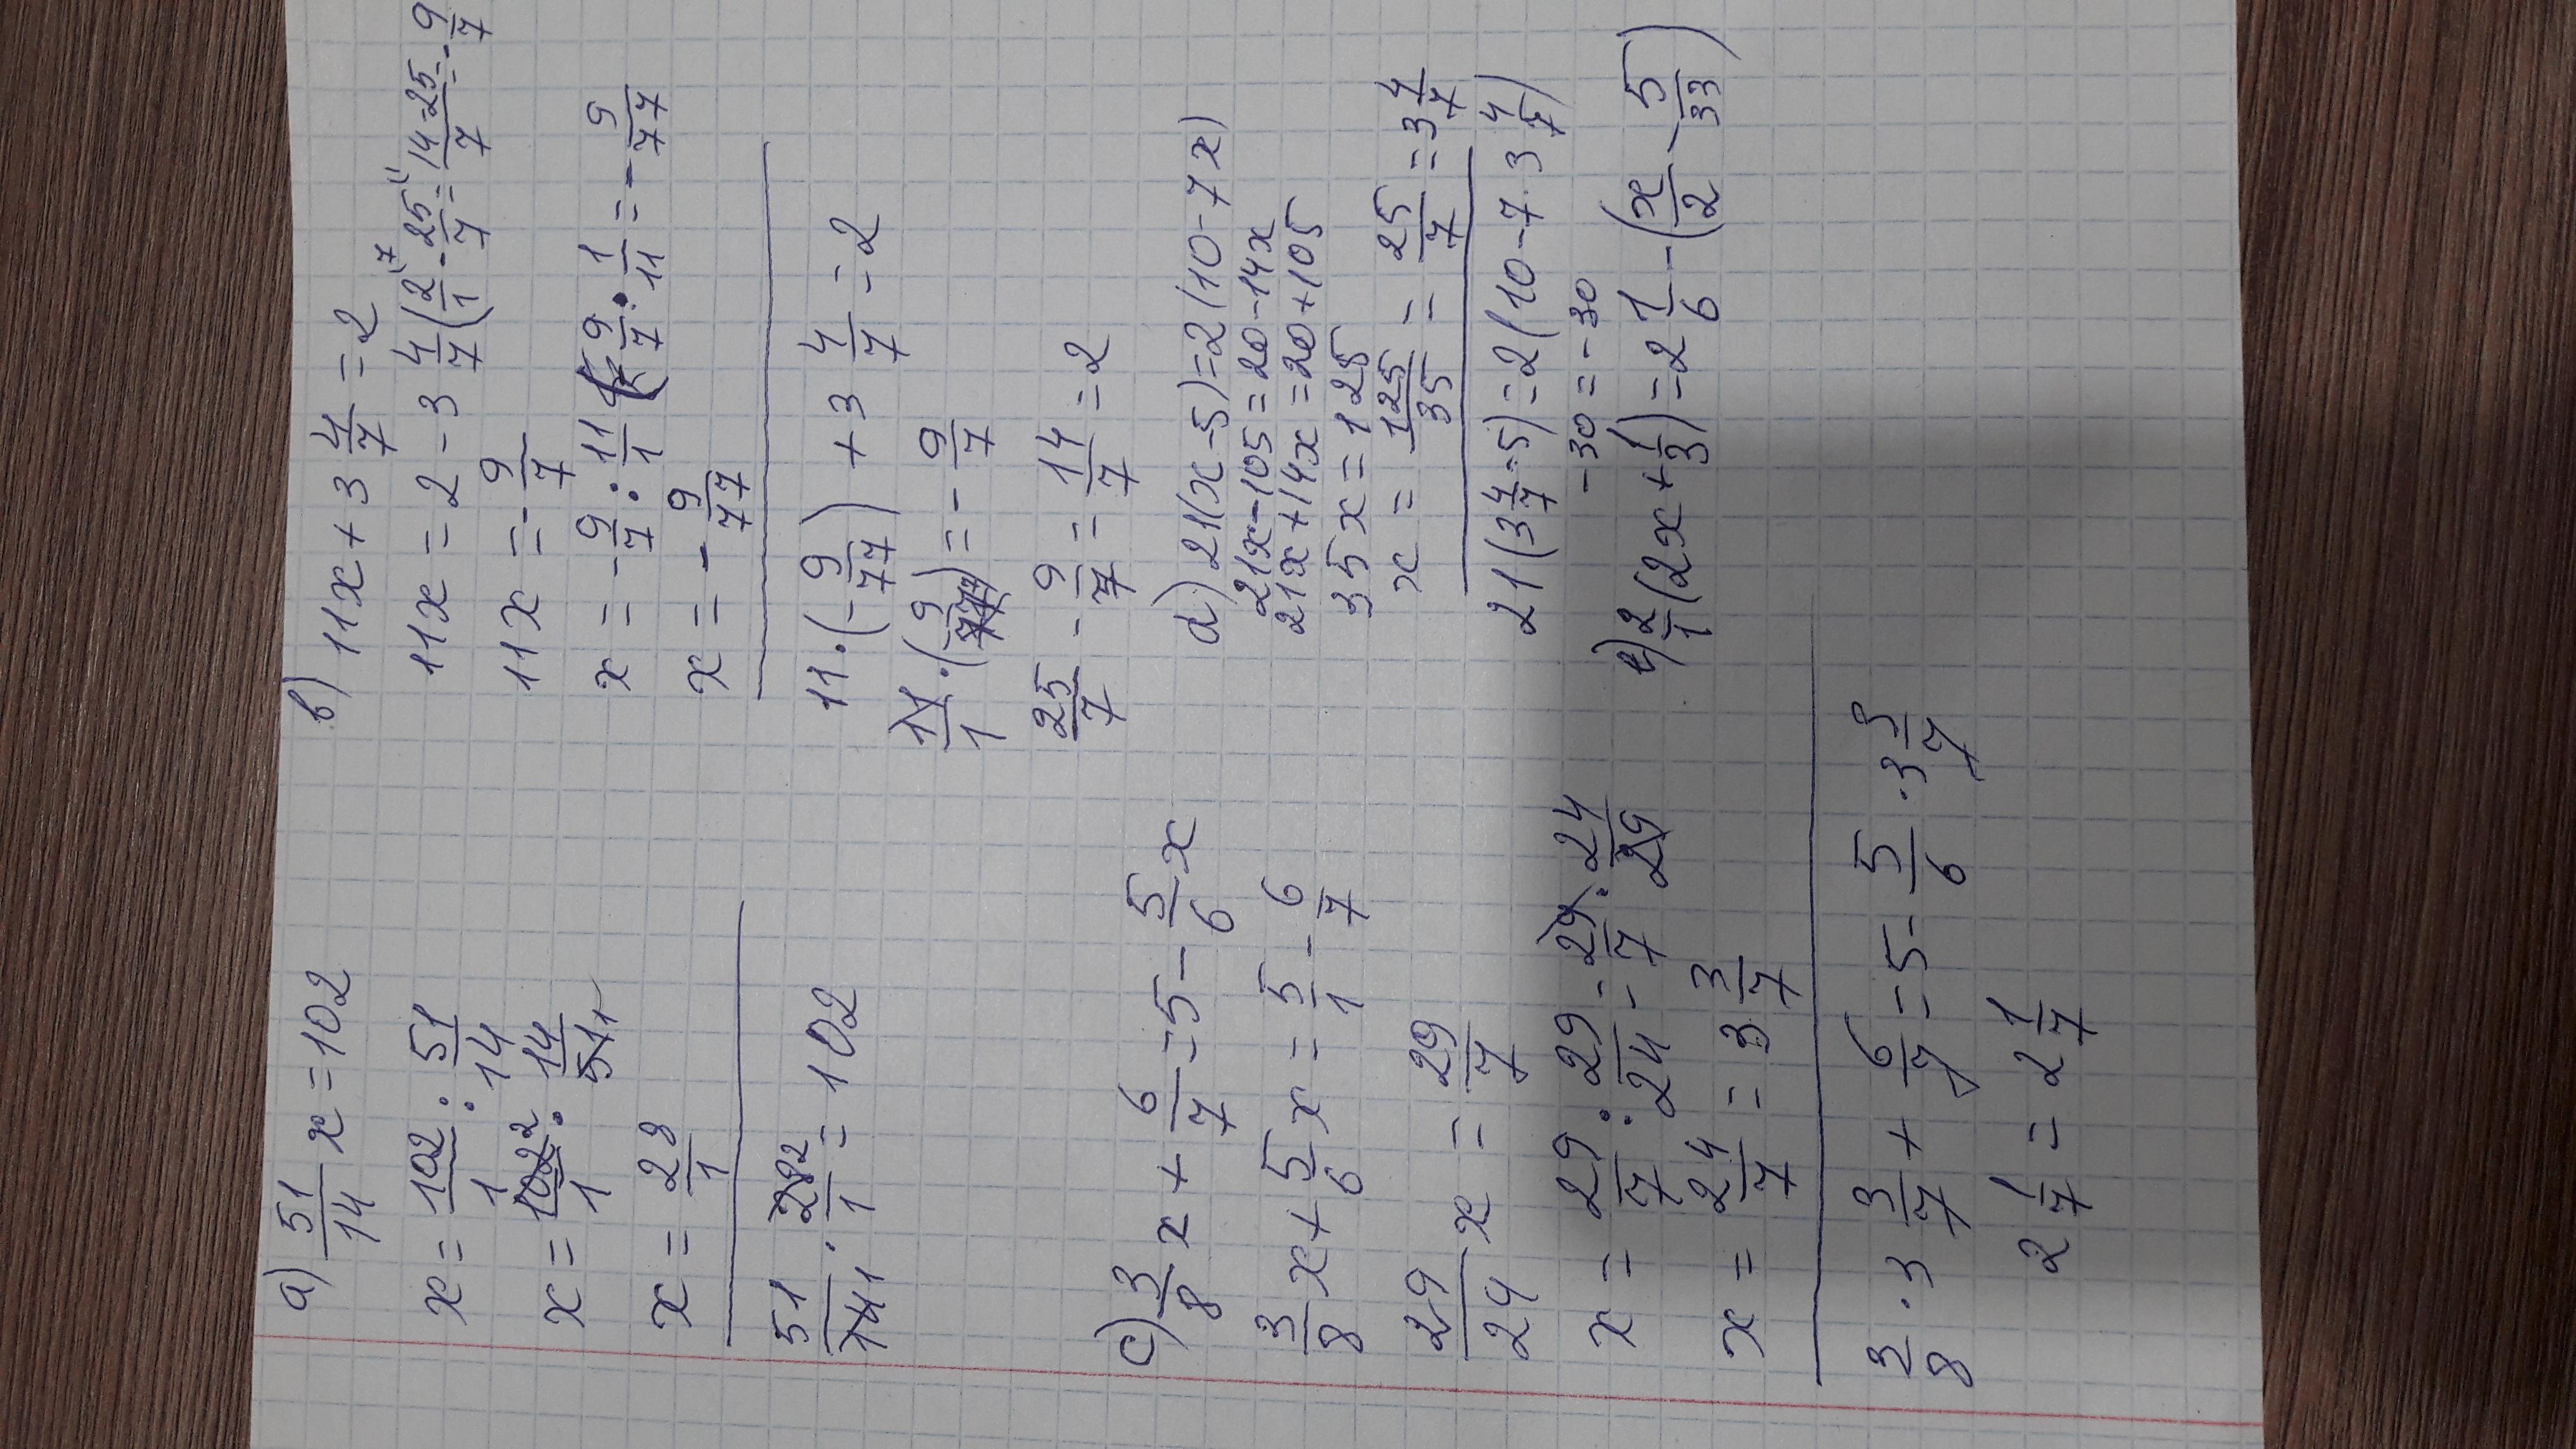 a) 51/14 x = 102
x = 102/1 : 51/14
x = 102/1 · 14/51
x = 28/1
51/14 · 28/1 = 102
c) 3/8 x + 6/7 = 5 - 5/6 x
3/8 x + 5/6 x = 5/1 - 6/7
29/24 x = 29/7
x = 29/7 : 29/24 - 29/7 · 24/29
x = 24/7 = 3 3/7
3/8 · 3 3/7 + 6/7 = 5 - 5/6 · 3 3/7
2 1/7 = 2 1/7
b) 11x + 3 4/7 = 2
11x = 2 - 3 4/7 (2/1 - 25/7 = 14-25/7 = -9/7
11x = -9/7
x = -9/7 : 11/1 9/7 · 1/11 = -9/77
x = -9/77
11·(-9/77) + 3 4/7 = 2
11/1·(-9/77) = -9/7
25/7 - 9/7 = 14/7 = 2
d) 21(x-5) = 2(10-7x)
21x - 105 = 20 - 14x
21x + 14x = 20 + 105
35x = 125
x = 125/35 = 25/7 = 3 4/7
21(3 4/7 - 5) = 2(10 - 7·3 4/7)
-30 = -30
e) 2/1 (2x + 1/3) = 2 1/6 - (x/2 - 5/33)